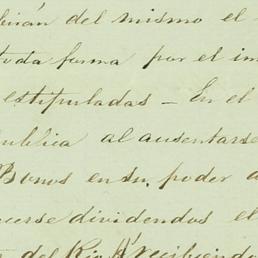 birán del mismo el
toda forma por el im
estipuladas - En el
publica al ausentarse
Bonos en su poder a
cerse dividendos el
del Rio recibiendo